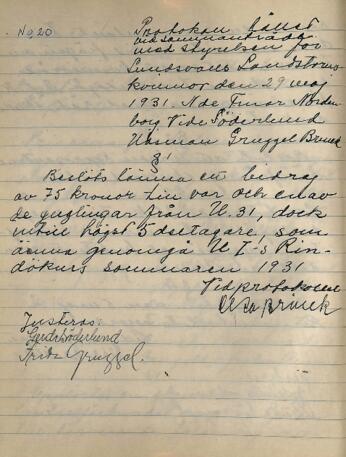 No 20
Protokoll hållet
vid sammanträde
med styrelsen för
Sundsvalls Landstorms
kvinnor den 29 maj
1931. N de Fruar Norden
borg Vide Söderlund
Gruggel Brinck
§1
Beslöts lämna ett bidrag
av 75 kronor till var och en av
de ynglingar från U. 31, dock
intill högst 5 deltagare, som
ämna genomgå U I-s Rin-
dökurs sommaren 1931
Vid protokollet
Brinck
Justeras:
Gerda Söderlund
Frida Gruggel.